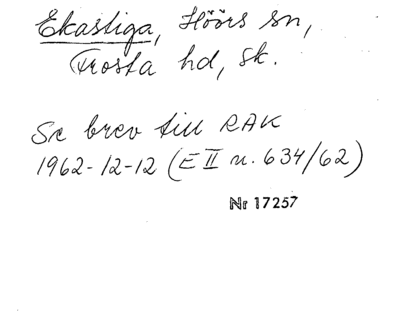 Ekastiga, Höörs sn,
Frosta hd, Sk.
Se brev till RAK
1962-12-12 (E II n. 634/62)
Nr 17257